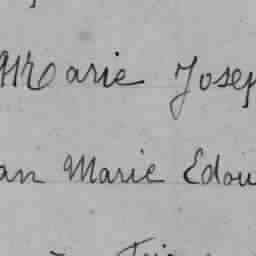 Marie Josep
an Marie Edou